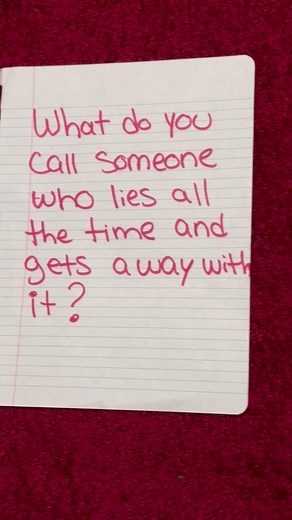 What do you
call someone
who lies all
the time and
gets away with
it?